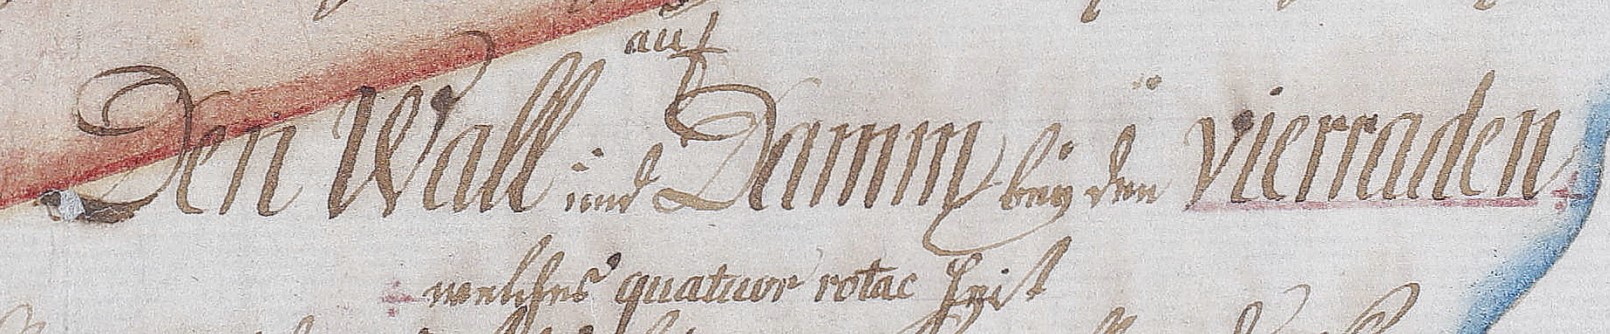 auf
Den Wall und Damm bey den vierraden
welches quatuor rotae heist